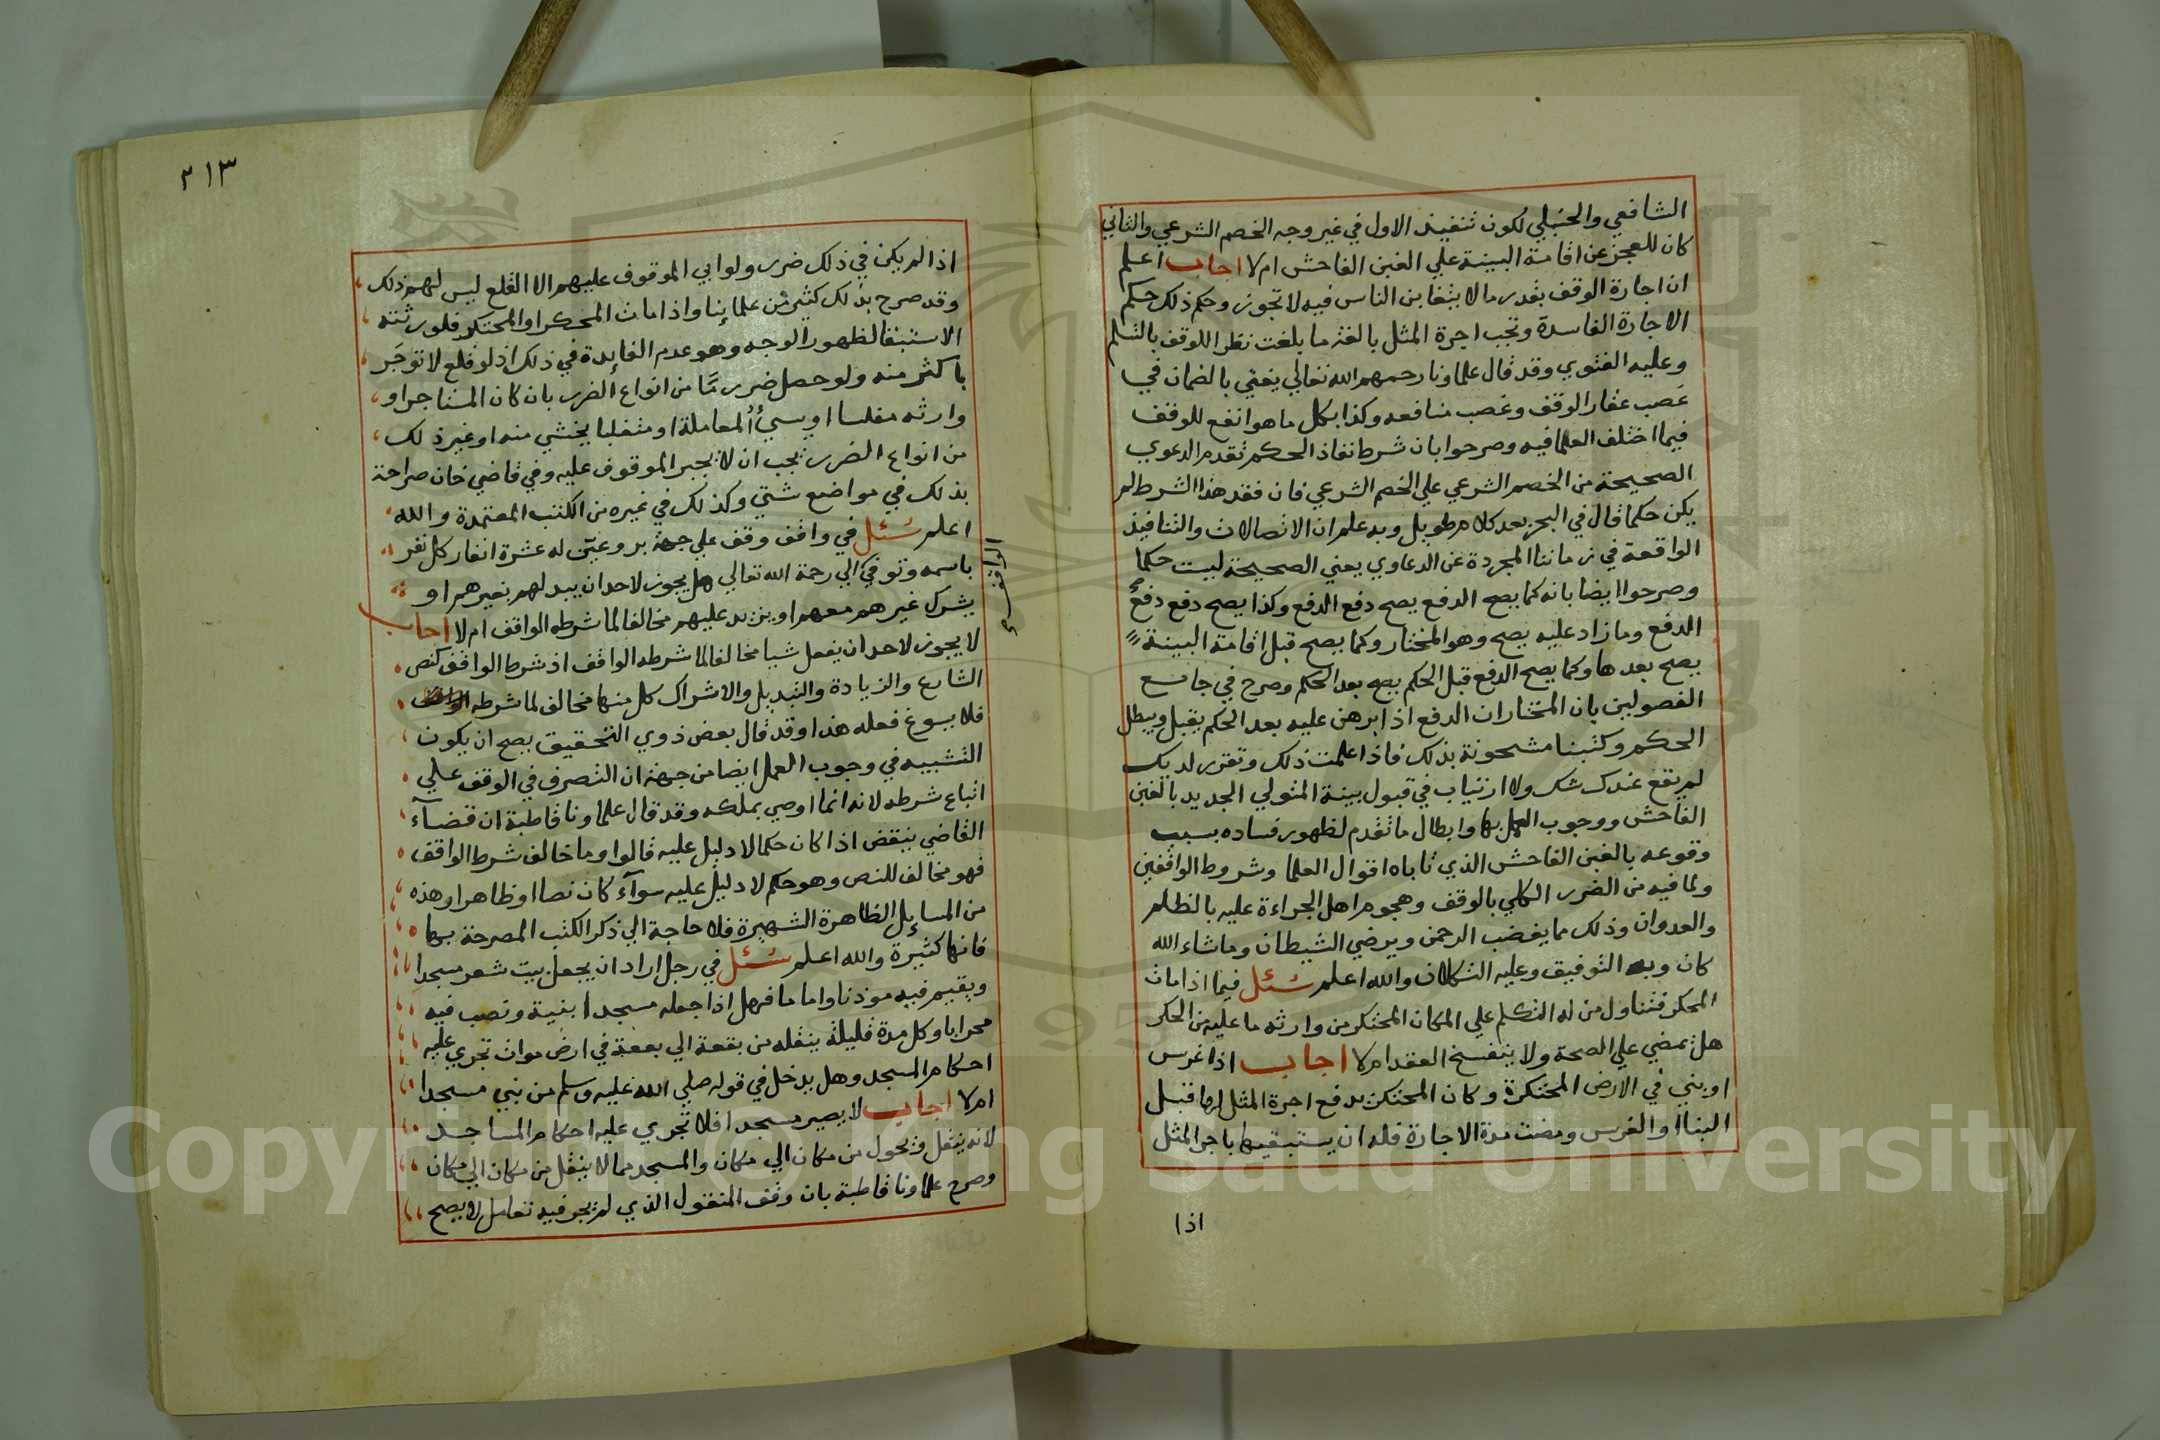 الشافعي والحنبلي لكون تنفيذ الاول في غير وجه الخصم الشرعي والثاني
كان للعجز عن اقامة البينة علي الغبن الفاحش ام لا اجاب اعلم
ان اجارة الوقف بقدر ما لا يتغابن الناس فيه لا تجوز وحكم ذلك حكم
الاجارة الفاسدة وتجب اجرة المثل بالغة ما بلغت نظرا للوقف بالتسلم
وعليه الفتوي وقد قال علماونا رحمهم الله تعالي يفتي بالضمان في
غصب عقار الوقف وغصب منافعه وكذا بكل ما هو انفع للوقف
فيما اختلف العلما فيه وصرحوا بان شرط نفاذ الحكم تقدم الدعوي
الصحيحة من الخصم الشرعي علي الخصم الشرعي فان فقد هذا الشرط لم
يكن حكما قال في البحر بعد كلام طويل وبه علم ان الاتصالات والتنافيذ
الواقعة في زماننا المجردة عن الدعاوي يعني الصحيحة ليست حكما
وصرحوا ايضا بانه كما يصح الدفع يصح دفع الدفع وكذا يصح دفع دفع
الدفع وما زاد عليه يصح وهو المختار وكما يصح قبل اقامة البينة
يصح بعدها وكما يصح الدفع قبل الحكم يصح بعد الحكم وصرح في جامع
الفصولين بان المختار ان الدفع اذا برهن عليه بعد الحكم يقبل ويبطل
الحكم وكتبنا مشحونة بذلك فاذا علمت ذلك وتقرر لديك
لم يقع عندك شك ولا ارتياب في قبول بينة المتولي الجديد بالغبن
الفاحش ووجوب العمل بها وابطال ما تقدم لظهور فساده بسبب
وقوعه بالغبن الفاحش الذي تاباه اقوال العلما وشروط الواقفين
ولما فيه من الضرر الكلي بالوقف وهجوم اهل الجراءة عليه بالظلم
والعدوان وذلك مما يغضب الرحمن ويرضي الشيطان وما شاء الله
كان وبه التوفيق وعليه التكلان والله اعلم سئل فيما اذا مات
المحكر فتناول من له التكلم علي المكان المحتكر من وارثه ما عليه من الحكر
هل تمضي علي الصحة ولا ينفسخ العقد ام لا اجاب اذا غرس
او بني في الارض المحتكرة وكان المحتكر يدفع اجرة المثل لها قبل
البنا او الغرس ومضت مدة الاجارة فله ان يستبقيها باجر المثل
اذا
٢١٣
اذا لم يكن في ذلك ضرر ولو ابي الموقوف عليهم الا القلع ليس لهم ذلك
وقد صرح بذلك كثير من علمائنا واذا مات المحكر او المحتكر فلورثته
الاستبقا لظهور الوجه وهو عدم الفايدة في ذلك اذ لو قلع لا توجر
باكثر منه ولو حصل ضرر ما من انواع الضرر بان كان المستاجر او
وارثه مفلسا او سيئ المعاملة او متغلبا يخشي منه او غير ذلك
من انواع الضرر يجب ان لا يجبر الموقوف عليه وفي قاضي خان صراحة
بذلك في مواضع شتي وكذلك في غيره من الكتب المعتمدة والله
اعلم سئل في واقف وقف علي جهة بر وعين له عشرة انفار كل نفر
باسمه وتوفي الي رحمة الله تعالي هل يجوز لاحد ان يبدلهم بغيرهم او
يشرك غيرهم معهم او يزيد عليهم مخالفا لما شرطه الواقف ام لا اجاب
لا يجوز لاحد ان يفعل شيا مخالفا لما شرطه الواقف اذ شرط الواقف كنص
الشارع والزيادة والتبديل والاشراك كل منها مخالف لما شرطه الواقف
فلا يسوغ فعله هذا وقد قال بعض ذوي التحقيق يصح ان يكون
التشبيه في وجوب العمل ايضا من جهة ان التصرف في الوقف علي
اتباع شرطه لانه انما اوصي بملكه وقد قال علماونا قاطبة ان قضآء
القاضي ينقض اذا كان حكما لا دليل عليه قالوا وما خالف شرط الواقف
فهو مخالف للنص وهو حكم لا دليل عليه سوآء كان نصا او ظاهرا وهذه
من المسايل الظاهرة الشهيرة فلا حاجة الي ذكر الكتب المصرحة بها
فانها كثيرة والله اعلم سئل في رجل اراد ان يجعل بيت شعر مسجدا
ويقيم فيه موذنا واماما فهل اذا جعله مسجدا بنية ونصب فيه
محرابا وكل مدة قليلة ينقله من بقعة الي بقعة في ارض موات تجري عليه
احكام المسجد وهل يدخل في قوله صلي الله عليه وسلم من بني مسجدا
ام لا اجاب لا يصير مسجدا فلا تجري عليه احكام المساجد
لانه ينقل ويحول من مكان الي مكان والمسجد مما لا ينقل من مكان الي مكان
وصرح علماونا قاطبة بان وقف المنقول الذي لم يجر فيه تعامل لا يصح
Copyright © King Saud University